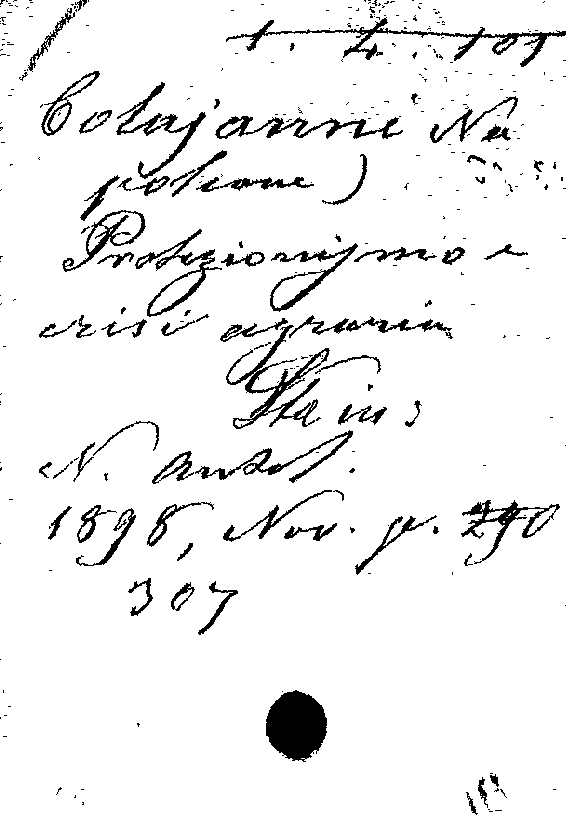 1. 4. 101
Colajanni Na
poleone)
Protezionismo e
crisi agraria
Sta in:
N. Antol.
1898, Nov. p. 290
307